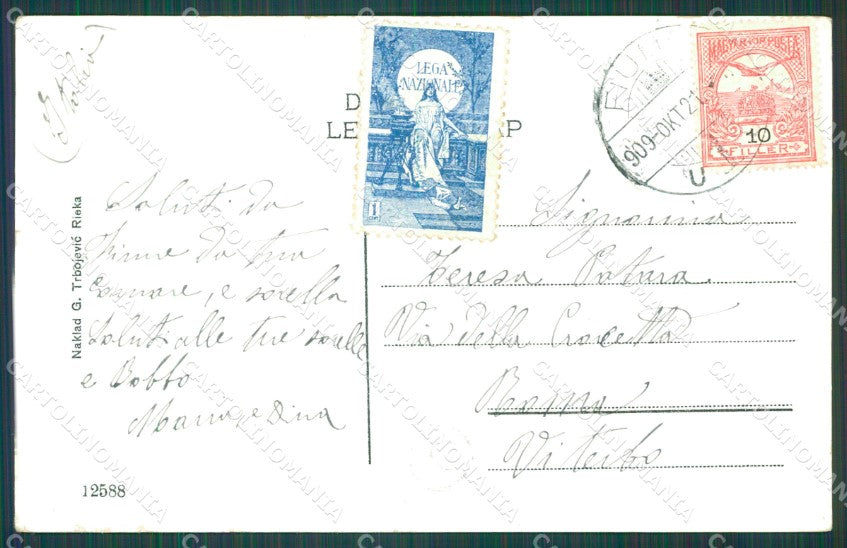 Italia
D
LE AP
LEGA
NAZIONALE
1
FIUM
909-OKT.21
U
MAGYAR KIR. POSTA
10
FILLER
Saluti da
Fiume da tua
Comare, e sorella
Saluti alle tue sorelle
e Babbo
Signorina
Teresa
Via della Crocetta
Roma
Viterbo
Naklad G. Trbojević Rieka
12588
CARTOLINOMANIA